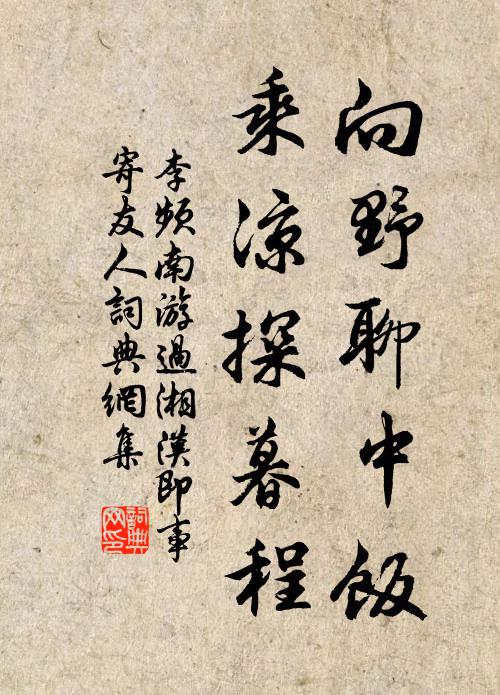 向野聊中飯
乘涼探暮程
李頻南游過湘漢即事
寄友人詞典網集
詞典
网印